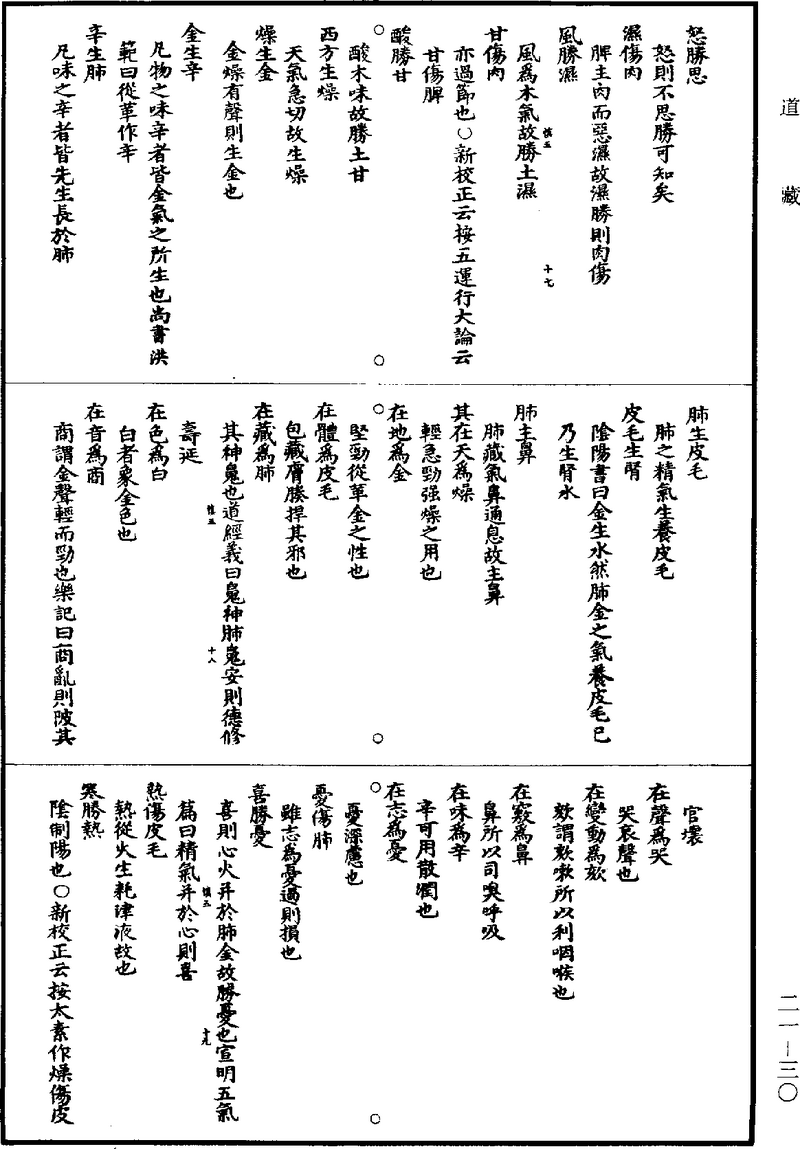 道藏
怒勝思
怒則不思勝可知矣
濕傷肉
脾主肉而惡濕故濕勝則肉傷
風勝濕
慎五
十七
風爲木氣故勝土濕
甘傷肉
亦過節也○新校正云按五運行大論云
甘傷脾
酸勝甘
酸木味故勝土甘
西方生燥
天氣急切故生燥
燥生金
金燥有聲則生金也
金生辛
凡物之味辛者皆金氣之所生也尚書洪
範曰從革作辛
辛生肺
凡味之辛者皆先生長於肺
肺生皮毛
肺之精氣生養皮毛
皮毛生腎
陰陽書曰金生水然肺金之氣養皮毛已
乃生腎水
肺主鼻
肺藏氣鼻通息故主鼻
其在天爲燥
輕急勁强燥之用也
在地爲金
堅勁從革金之性也
在體爲皮毛
包藏膚腠捍其邪也
在藏爲肺
其神䰟也道經義曰䰟神肺䰟安則德修
慎五
十八
壽延
在色爲白
白者象金色也
在音爲商
商謂金聲輕而勁也樂記曰商亂則陂其
官壞
在聲爲哭
哭哀聲也
在變動爲欬
欬謂欬嗽所以利咽喉也
在竅爲鼻
鼻所以司嗅呼吸
在味爲辛
辛可用散潤也
在志爲憂
憂深慮也
憂傷肺
雖志爲憂過則損也
喜勝憂
喜則心火并於肺金故勝憂也宣明五氣
慎五
十九
篇曰精氣并於心則喜
熱傷皮毛
熱從火生耗津液故也
寒勝熱
陰制陽也○新校正云按太素作燥傷皮
二一—三〇